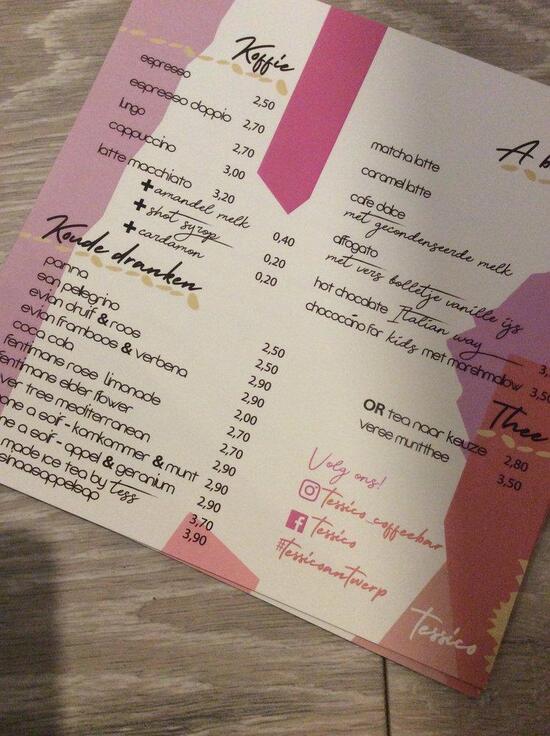 Koffie
espresso 2,50
espresso doppio 2,70
lungo 2,70
cappuccino 3,00
latte macchiato 3,20
+ amandel melk 0,40
+ shot syrop 0,20
+ cardamon 0,20
Koude dranken
panna 2,50
san pelegrino 2,50
evian druif & roos 2,90
evian framboos & verbena 2,90
coca cola 2,00
fentimane rose limonade 2,70
fentimane elder flower 2,70
ver tree mediterranean 2,90
one a soif - komkommer & munt 2,90
ne a soif - appel & geranium 2,90
made ice tea by tess 3,70
sinaasappelsap 3,90
A b
matcha latte
caramel latte
cafe dolce
met gecondenseerde melk
affogato
met vers bolletje vanille ijs
hot chocolate Italian way 3,
chococino for kids met marshmallow 3,50
Thee
OR tea naar keuze 2,80
verse muntthee 3,50
Volg ons!
tessico_coffeebar
tessico
#tessicoantwerp
tessico